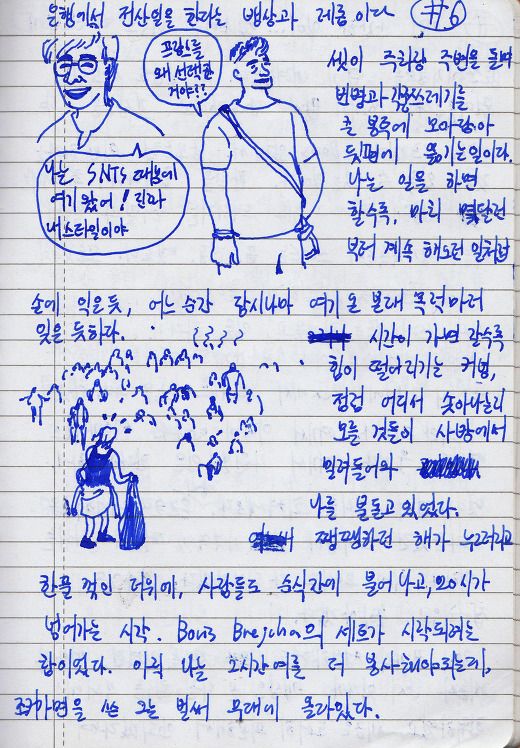 은행에서 전산일을 한다는 뱅상과 레롬이다 #6
프랑스를
왜 선택한
거야??
나는 SNTS 때문에
여기 왔어! 진짜
내 스타일이야
셋이 주최랑 주변을 돌며
빈병과 각종쓰레기를
큰 봉투에 모아담아
뒷편에 옮기는일이다.
나는 일을 하면
할수록, 마치 몇달전
부터 계속 해오던 일처럼
손에 익은듯, 어느 순간 잠시나마 여기 온 본래 목적마저
잊은 듯하다.
시간이 가면 갈수록
힘이 떨어지기는 커녕,
정점 어디서 솟아나는지
모를 것들이 사방에서
밀려들어와
나를 붙들고 있었다.
쨍쨍하던 해가 누그러지고
한풀 꺾인 더위에, 사람들도 순식간에 불어나고, 20시가
넘어가는 시각. Boris Brejcha의 세트가 시작되려는
참이었다. 아직 나는 2시간여를 더 봉사해야되는데,
조커가면을 쓴 그는 벌써 무대에 올라있다.